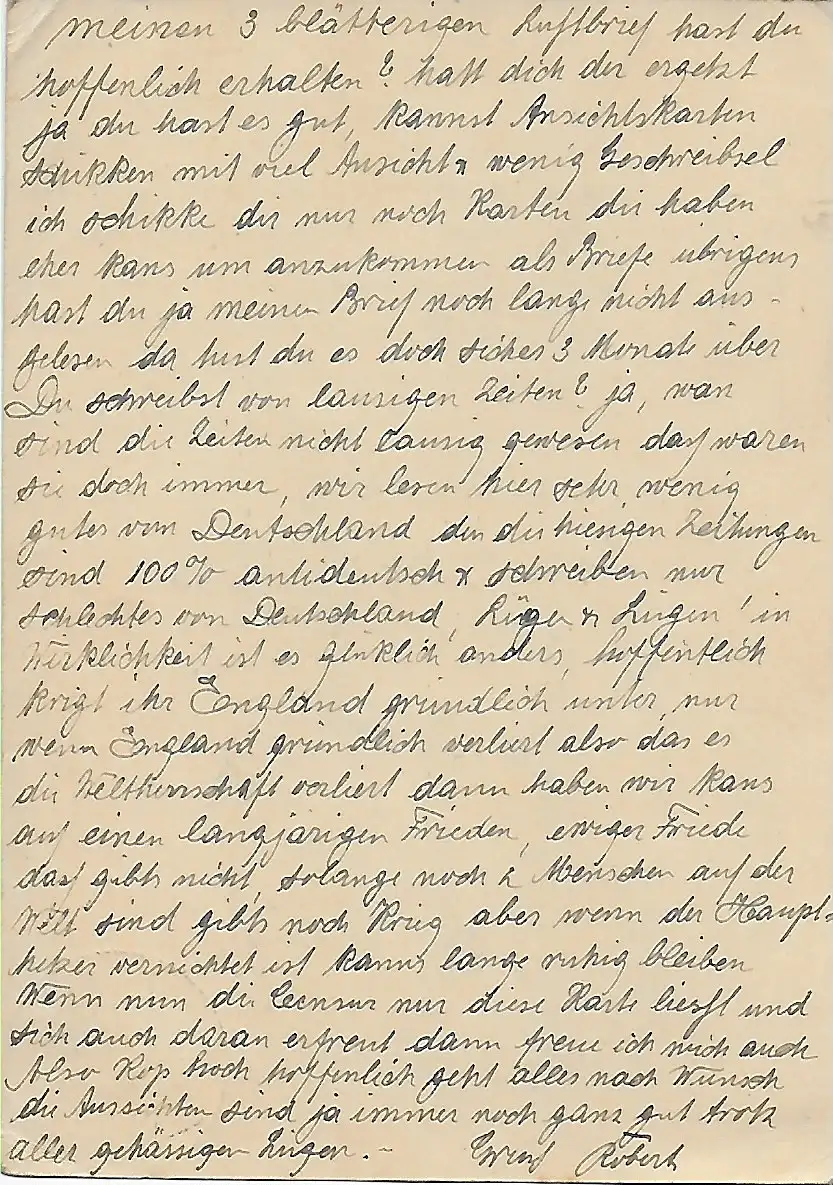 meinen 3 blätterigen Luftbrief hast du
hoffenlich erhalten? hatt dich der ergetzt
ja du hast es gut, kannst Ansichtskarten
schikken mit viel Ansicht & wenig Geschreibsel
ich schikke dir nur noch Karten die haben
eher kans um anzukommen als Briefe übrigens
hast du ja meinen Brief noch lange nicht aus-
gelesen da tust du es doch sicher 3 Monate über
Du schreibst von lausigen Zeiten? ja, wan
sind die Zeiten nicht lausig gewesen dass waren
sie doch immer, wir lesen hier sehr wenig
gutes von Deutschland den die hiesigen Zeitungen
sind 100% antideutsch & schreiben nur
schlechtes von Deutschland, Lügen & Lügen! in
Wirklichkeit ist es glüklich anders, hoffentlich
krigt ihr England gründlich unter, nur
wenn England gründlich verliert also das es
die Weltherrschaft verliert dann haben wir kans
auf einen langjärigen Frieden, ewiger Friede
dass gibts nicht, solange noch 2 Menschen auf der
Welt sind gibts noch Krieg aber wenn der Haupt-
hetzer vernichtet ist kanns lange ruhig bleiben
Wenn nun die Censur nur diese Karte liesst und
sich auch daran erfreut dann freue ich mich auch
Also Kop hoch hoffenlich geht alles nach Wunsch
die Aussichten sind ja immer noch ganz gut trotz
aller gehässigen Lügen.- Gruss Robert